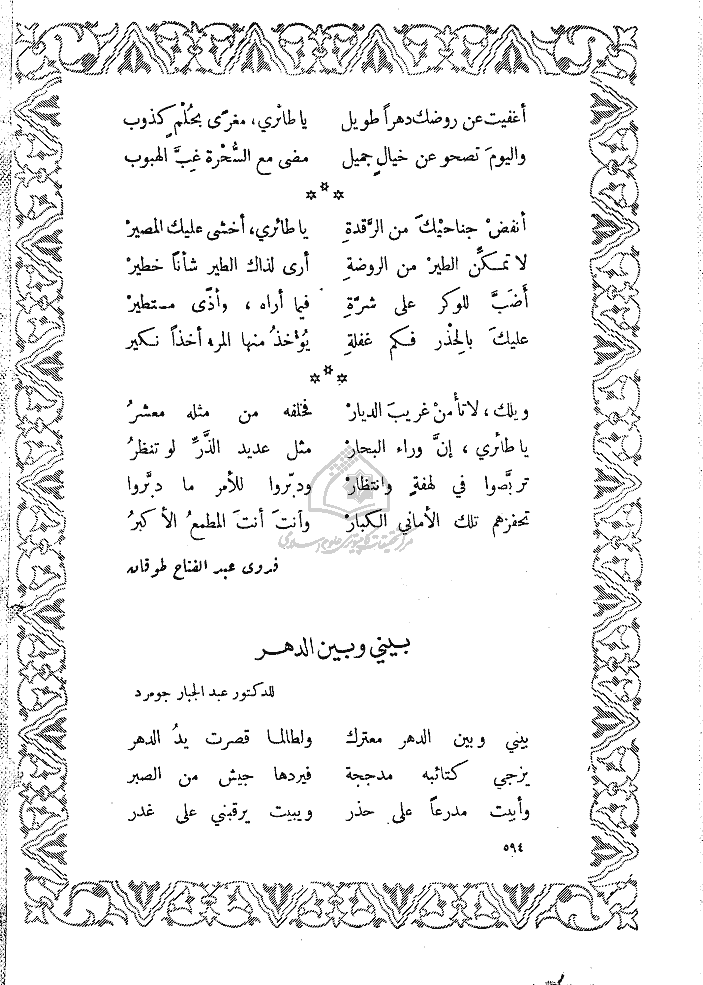 أغفيت عن روضك دهراً طويل يا طائري، مغرًى بحُلْمٍ كذوب
واليومَ تصحو عن خيالٍ جميل مضى مع السُّحْرة غِبَّ الهبوب
أنفضْ جناحيْكَ من الرَّقدةِ يا طائري، أخشى عليك المصيرْ
لا تمكّننَّ الطيرْ من الروضة أرى لذاك الطير شأناً خطيرْ
أَضَبَّ للوكر على شرّةٍ فيا أراه ، وأذًى مستطيرْ
عليكَ بالحِذْر فكم غفلةٍ يُؤْخذُ منها المرء أخذاً نكير
ويلك ، لا تأمنْ غريبَ الديارْ فخلفه من مثله معشرُ
يا طائري ، إنَّ وراء البحارْ مثل عديد الذَّرِّ لو تنظرُ
تربَّصوا في لهفةٍ وانتظارْ ودبّروا للأمر ما دبَّروا
تحفزهم تلك الأماني الكبارْ وأنتَ أنتَ المطمعُ الأكبرُ
فدوى عبد الفتاح طوقان
بيني وبين الدهر
للدكتور عبد الجبار جومرد
بيني وبين الدهر معترك ولطالما قصرت يدُ الدهر
يزجي كتائبه مدججة فيردها جيش من الصبر
وأبيت مدرعاً على حذر ويبيت يرقبني على غدر
٥٩٤